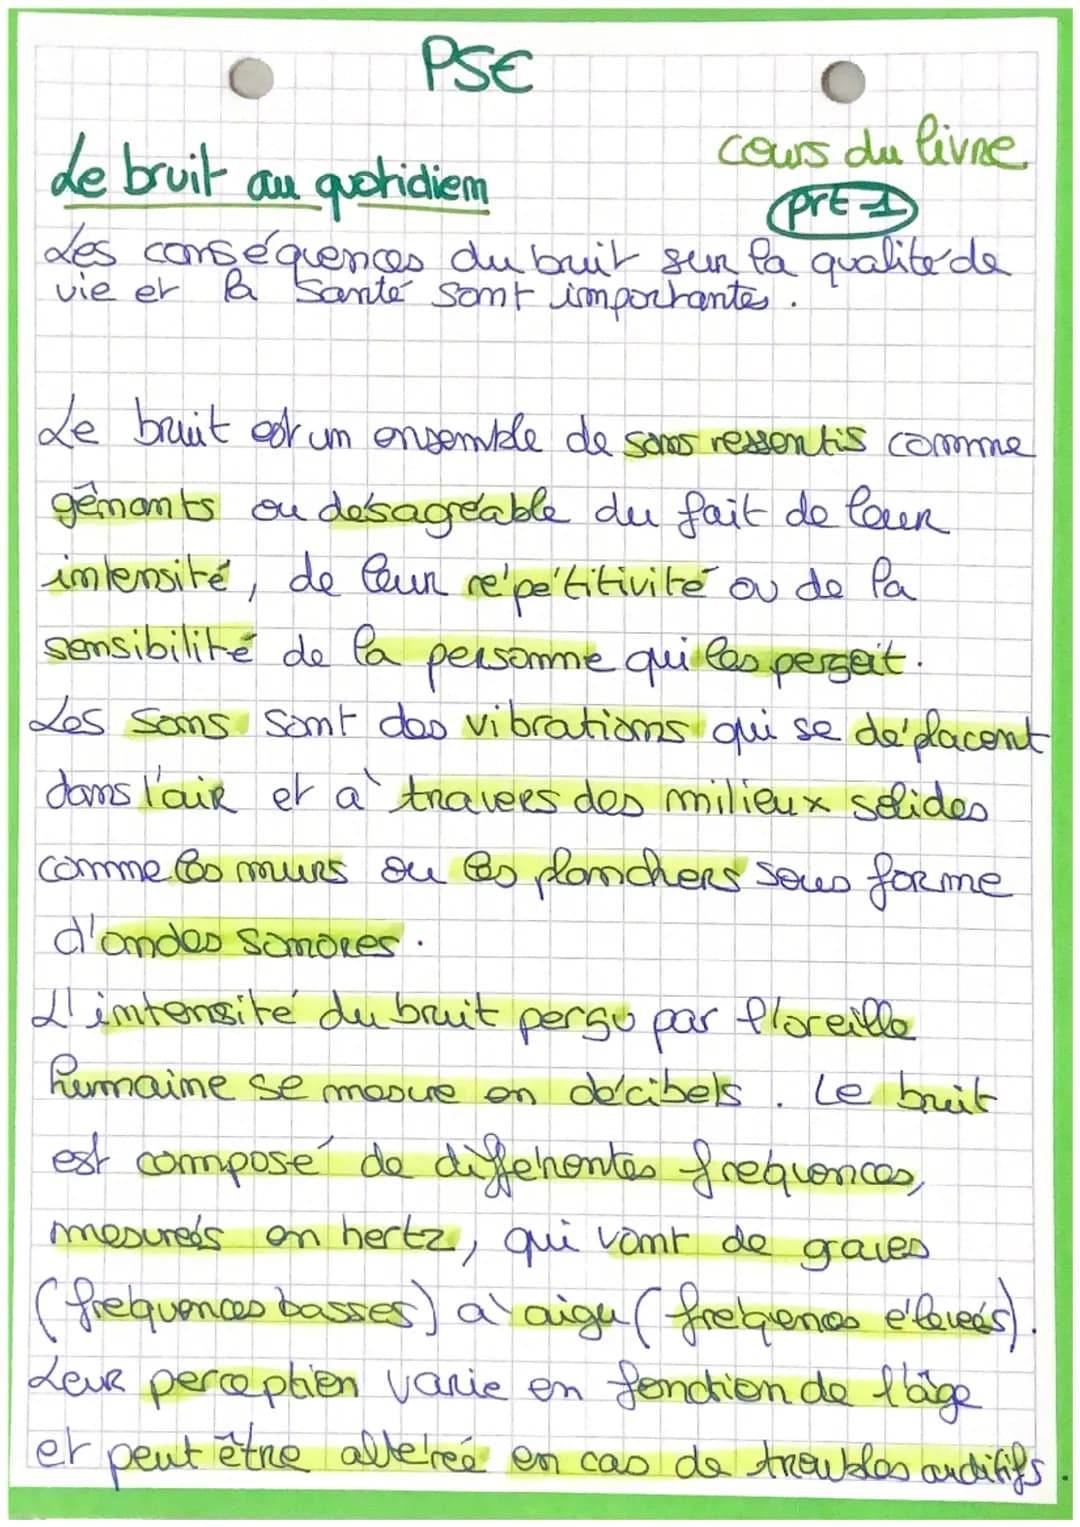 PSE
cours du livre
Le bruit au quotidien
prt 1
Les conséquences du bruit sur la qualité de
vie et la santé sont importantes.
Le bruit est un ensemble de sons ressentis comme
gênants ou désagréable du fait de leur
intensité, de leur répétitivité ou de la
sensibilité de la personne qui les perçoit.
Les sons sont des vibrations qui se déplacent
dans l'air et à travers des milieux solides
comme les murs ou les planchers sous forme
d'ondes sonores.
L'intensité du bruit perçu par l'oreille
humaine se mesure en décibels. Le bruit
est composé de différentes frequences,
mesureés en hertz, qui vont de graves
(frequences basses) à aigu (frequences éleveés).
Leur perception varie en fonction de l'âge
et peut être alterée en cas de troubles auditifs.